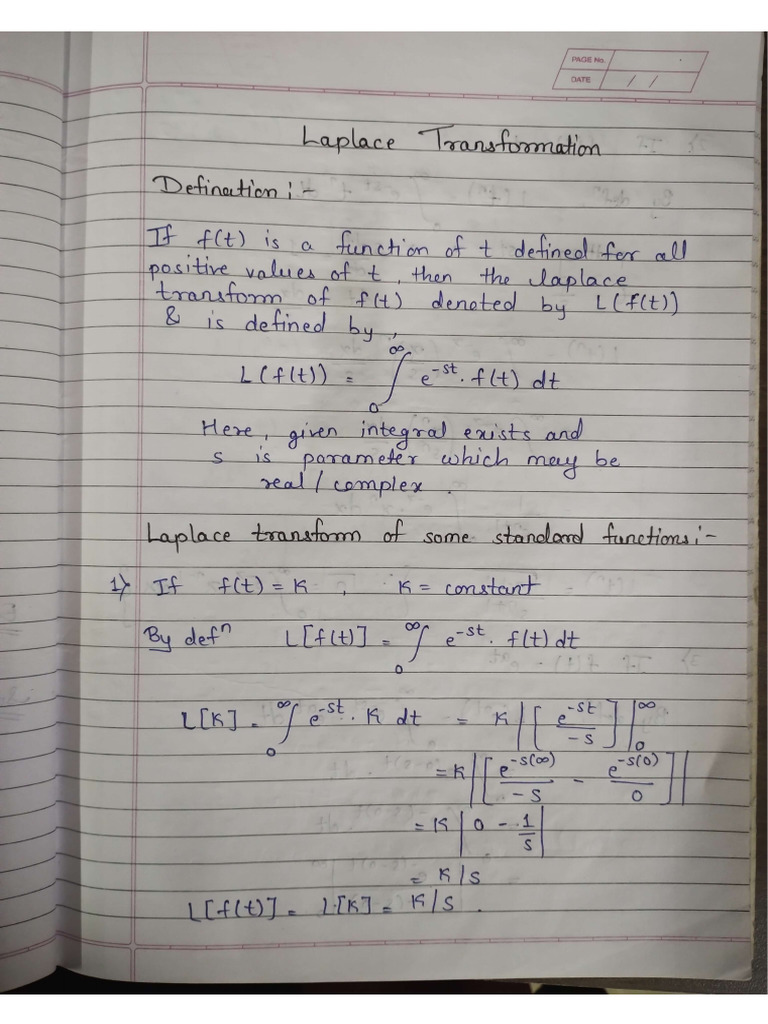 PAGE No.
DATE / /
Laplace Transformation
Defination :-
If f(t) is a function of t defined for all
positive values of t, then the laplace
transform of f(t) denoted by L(f(t))
& is defined by,
L(f(t)) = ∫₀^∞ e^-st . f(t) dt
Here, given integral exists and
s is parameter which may be
real / complex .
Laplace transform of some standard functions :-
1) If f(t) = K , K = constant
By defⁿ L[f(t)] = ∫₀^∞ e^-st . f(t) dt
L[K] = ∫₀^∞ e^-st . K dt = K |[ e^-st / -s ]|₀^∞
= K |[ e^-s(∞) / -s - e^-s(0) / 0 ]|
= K | 0 - 1/s |
= K/s
L[f(t)] = L[K] = K/s .